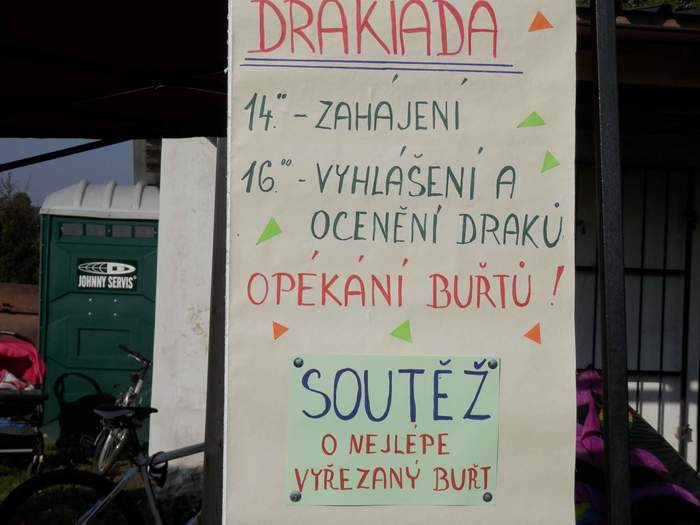 DRAKIÁDA
14.00 - ZAHÁJENÍ
16.00 - VYHLÁŠENÍ A
OCENĚNÍ DRAKŮ
OPÉKÁNÍ BUŘTŮ!
SOUTĚŽ
O NEJLÉPE
VYŘEZANÝ BUŘT
JOHNNY SERVIS